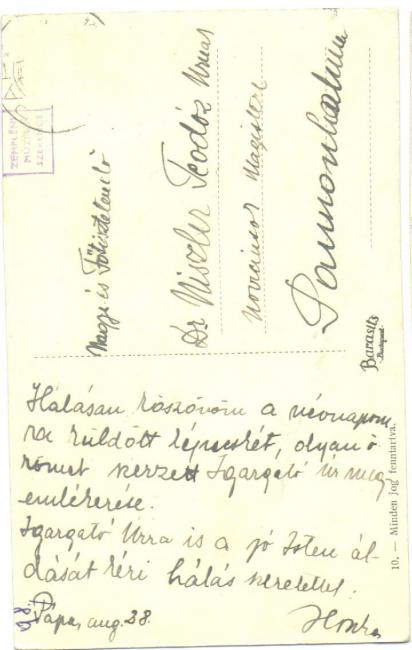 ZEMPLÉNI
MÚZEUM
SZERENCS
Nagys. és Főtisztelendő
Dr Niszler Teodóz Urnak
Noviciusok Magistere
Pannonhalma
Barasits
Budapest
10. — Minden jog fenntartva.
Hálásan köszönöm a névnapom
ra küldött képecskét, olyan ö
römet szerzett Igazgató Úr meg
emlékezése.
Igazgató Urra is a jó Isten ál-
dását kéri hálás szeretettel.
Pápa, aug. 28.